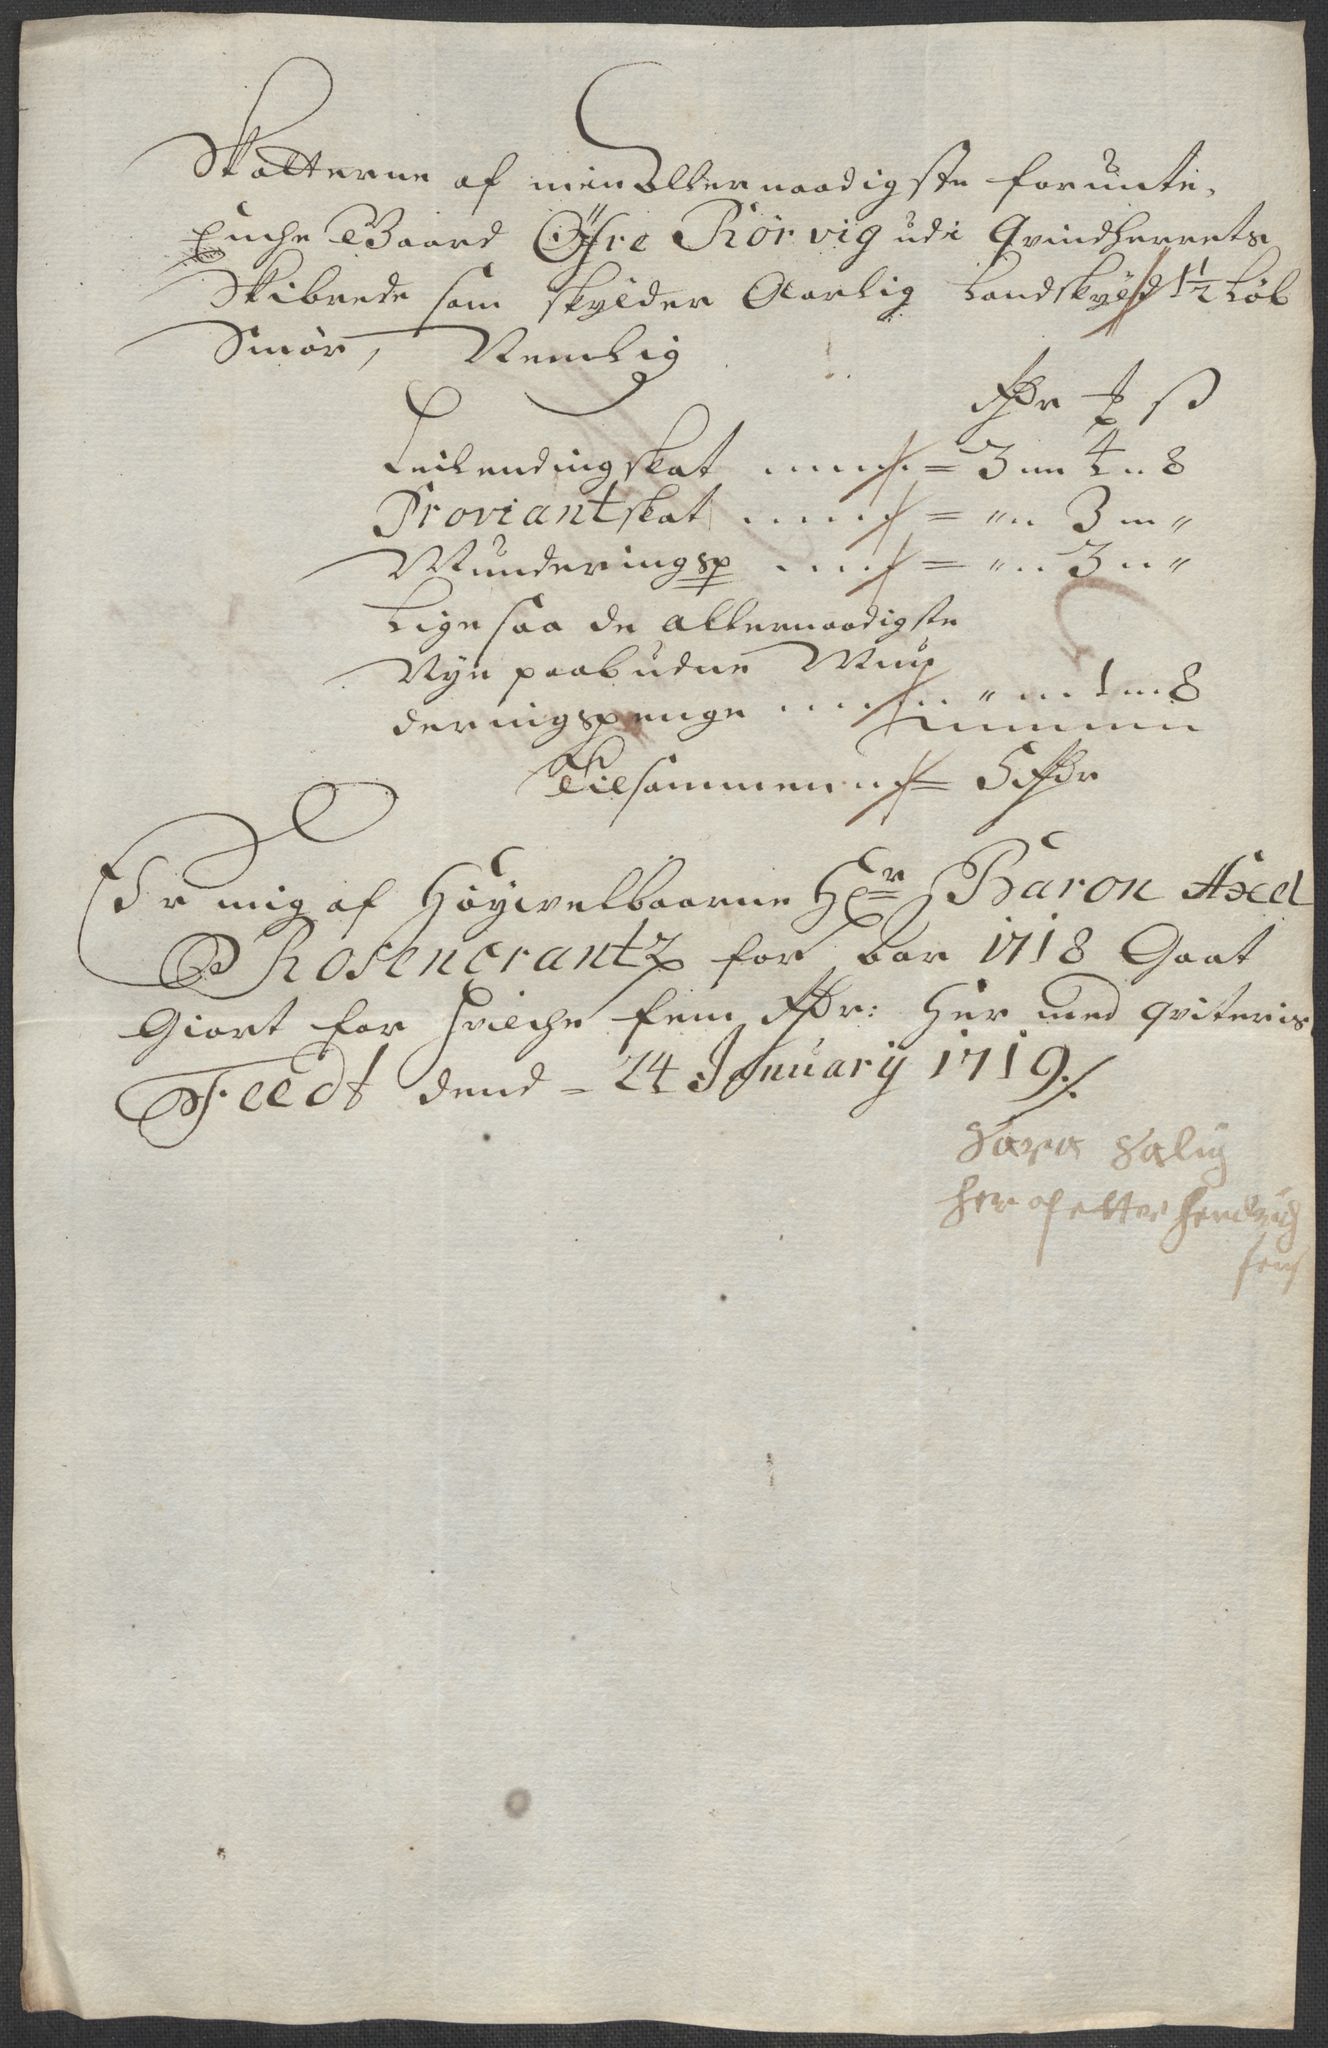 Skatterne af min Allernaadigste forunte,
Encke Gaard Öfre Rörvig udi Qvindherrets
Skibrede som skylder Aarlig Landskyld 1½ Løb
Smör, Nemlig
Rdr ß
Leilendingskat = 3 4 8
Proviantskat = " 3 "
Munderingsp = " 3 "
Ligesaa de allernaadigste
Nye paabudne Mun
deringspenge " 1 8
Tilsammen = 5 Rdr
Er mig af Höyvelbaarne Hr Baron Axel
Rosencrantz for Aar 1718 Gaat
Giort for hvilche fem Rdr: Her med qviteris
Feedt dend = 24 January 1719
Sara Salig
her Petter hendrich
sens